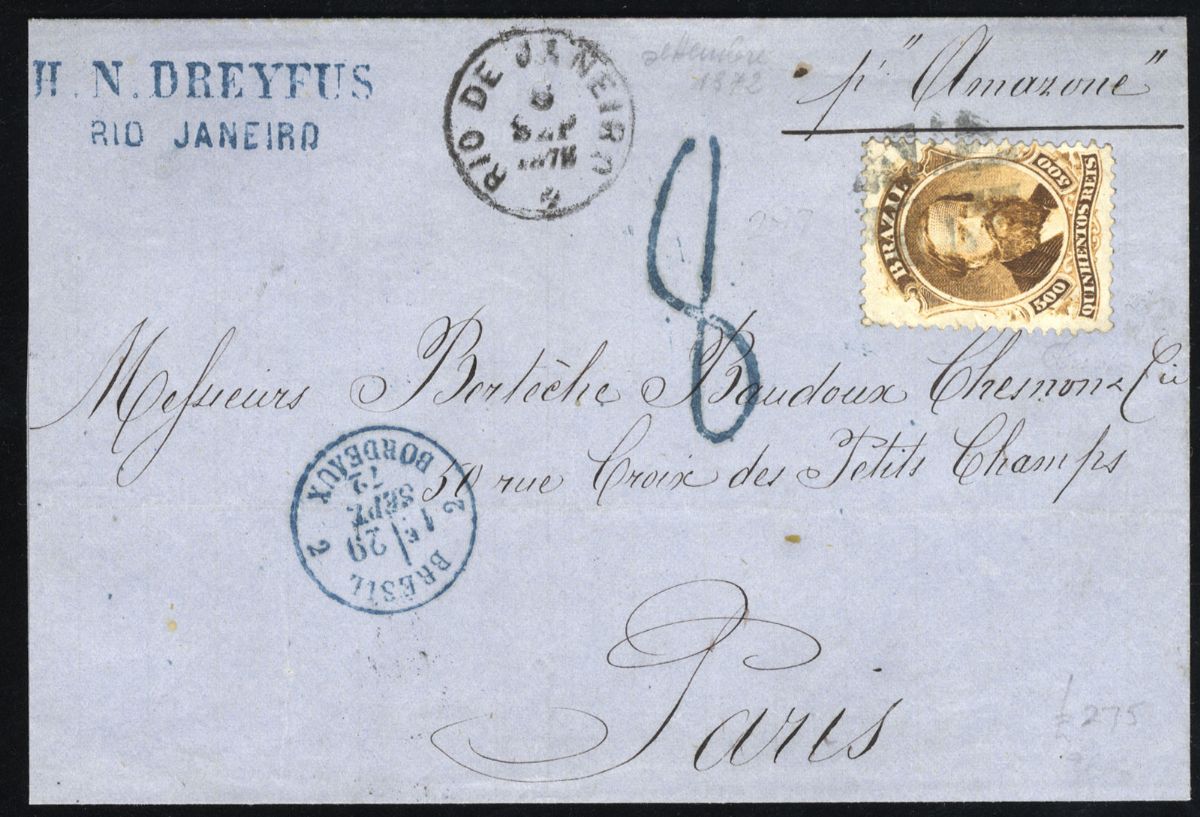 H. N. DREYFUS
RIO JANEIRO
RIO DE JANEIRO
6
SEP
1872
settembre
1872
p "Amazone"
8
BRAZIL
500
500
QUINHENTOS REIS
Messieurs Bertèche Baudoux Chesmon & Cie
50 rue Croix des Petits Champs
Paris
2 BRESIL 2
1E 29
SEPT.
72
BORDEAUX
275